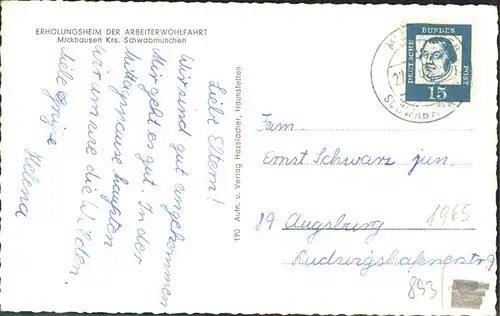 ERHOLUNGSHEIM DER ARBEITERWOHLFAHRT
Mickhausen Krs. Schwabmünchen
Liebe Eltern!
Wir sind gut angekommen
Mir geht es gut. In der
Mittagspause
wir immer die
Viele Grüße
Helena
190 Autn. u. Verlag Hasslacher, Haunstetten
DEUTSCHE BUNDES POST
15
Fam.
Ernst Schwarz jun.
89 Augsburg
1965
Ludwigshafenerstr 9
853